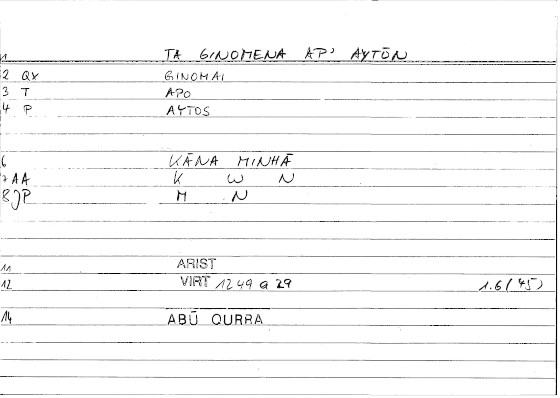 1 TA GINOMENA AP' AYTŌN
2 QX GINOMAI
3 T APO
4 P AYTOS
6 KĀNA MINHĀ
7 AA K W N
8 JP M N
11 ARIST
12 VIRT 1249 a 29 1.6 (45)
14 ABŪ QURRA